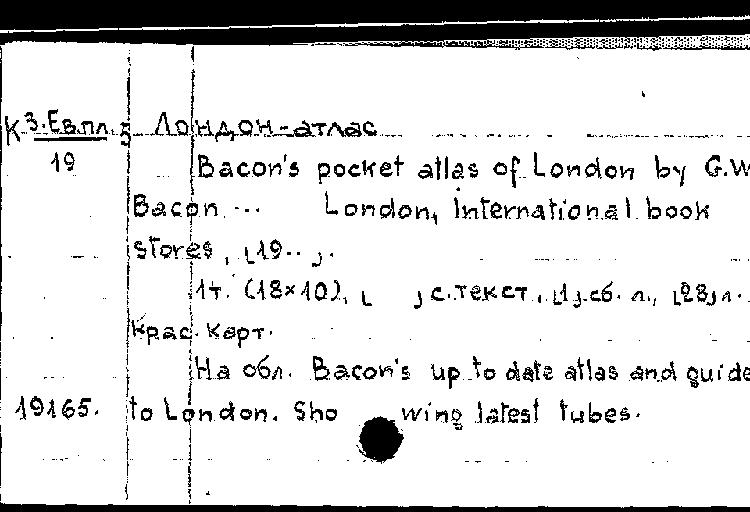 К 3.Ев.пл. 5 Лондон-атлас
19 Bacon's pocket atlas of London by G.W
Bacon ... London, International book
stores, [19..].
1т. (18×10), [ ] с. текст, [1] сб. л., [28] л.
крас. карт.
На обл. Bacon's up to date atlas and guide
19165. to London. Sho wing latest tubes.